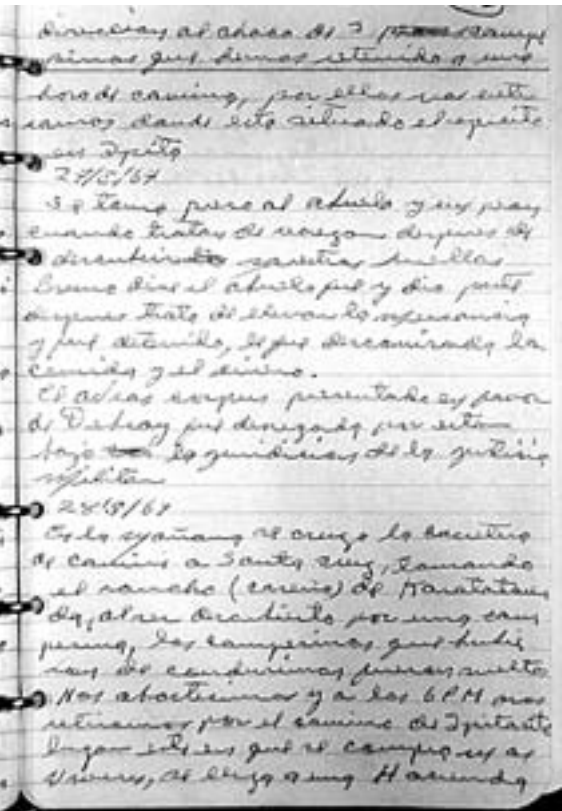 direccion al chaco de 3 campe
sinos que hemos retenido a una
hora de camino, por ellos nos ente
ramos donde esta situado el ejercito
en Ipita
27/5/67
Se tomo preso al abuelo y un peon
cuando tratan de despues de
nuestras huellas
Bueno dice el abuelo fue y dio parte
despues trato de llevar la
y fue detenido, le fue decomisado la
comida y el dinero.
El corpus presentado en favor
de Debray fue denegado por estar
bajo la de la justicia
militar
28/5/67
En la mañana se cruzo la carretera
de camino a Santa Cruz, tomando
el rancho (caserio) de
da, al ser descubierto por uno cam
pesino, los campesinos que
fueron sueltos
Nos abastecimos y a las 6 PM nos
retiramos por el camino de Ipitacito
lugar este en que se compro
viveres, se llego a una Hacienda